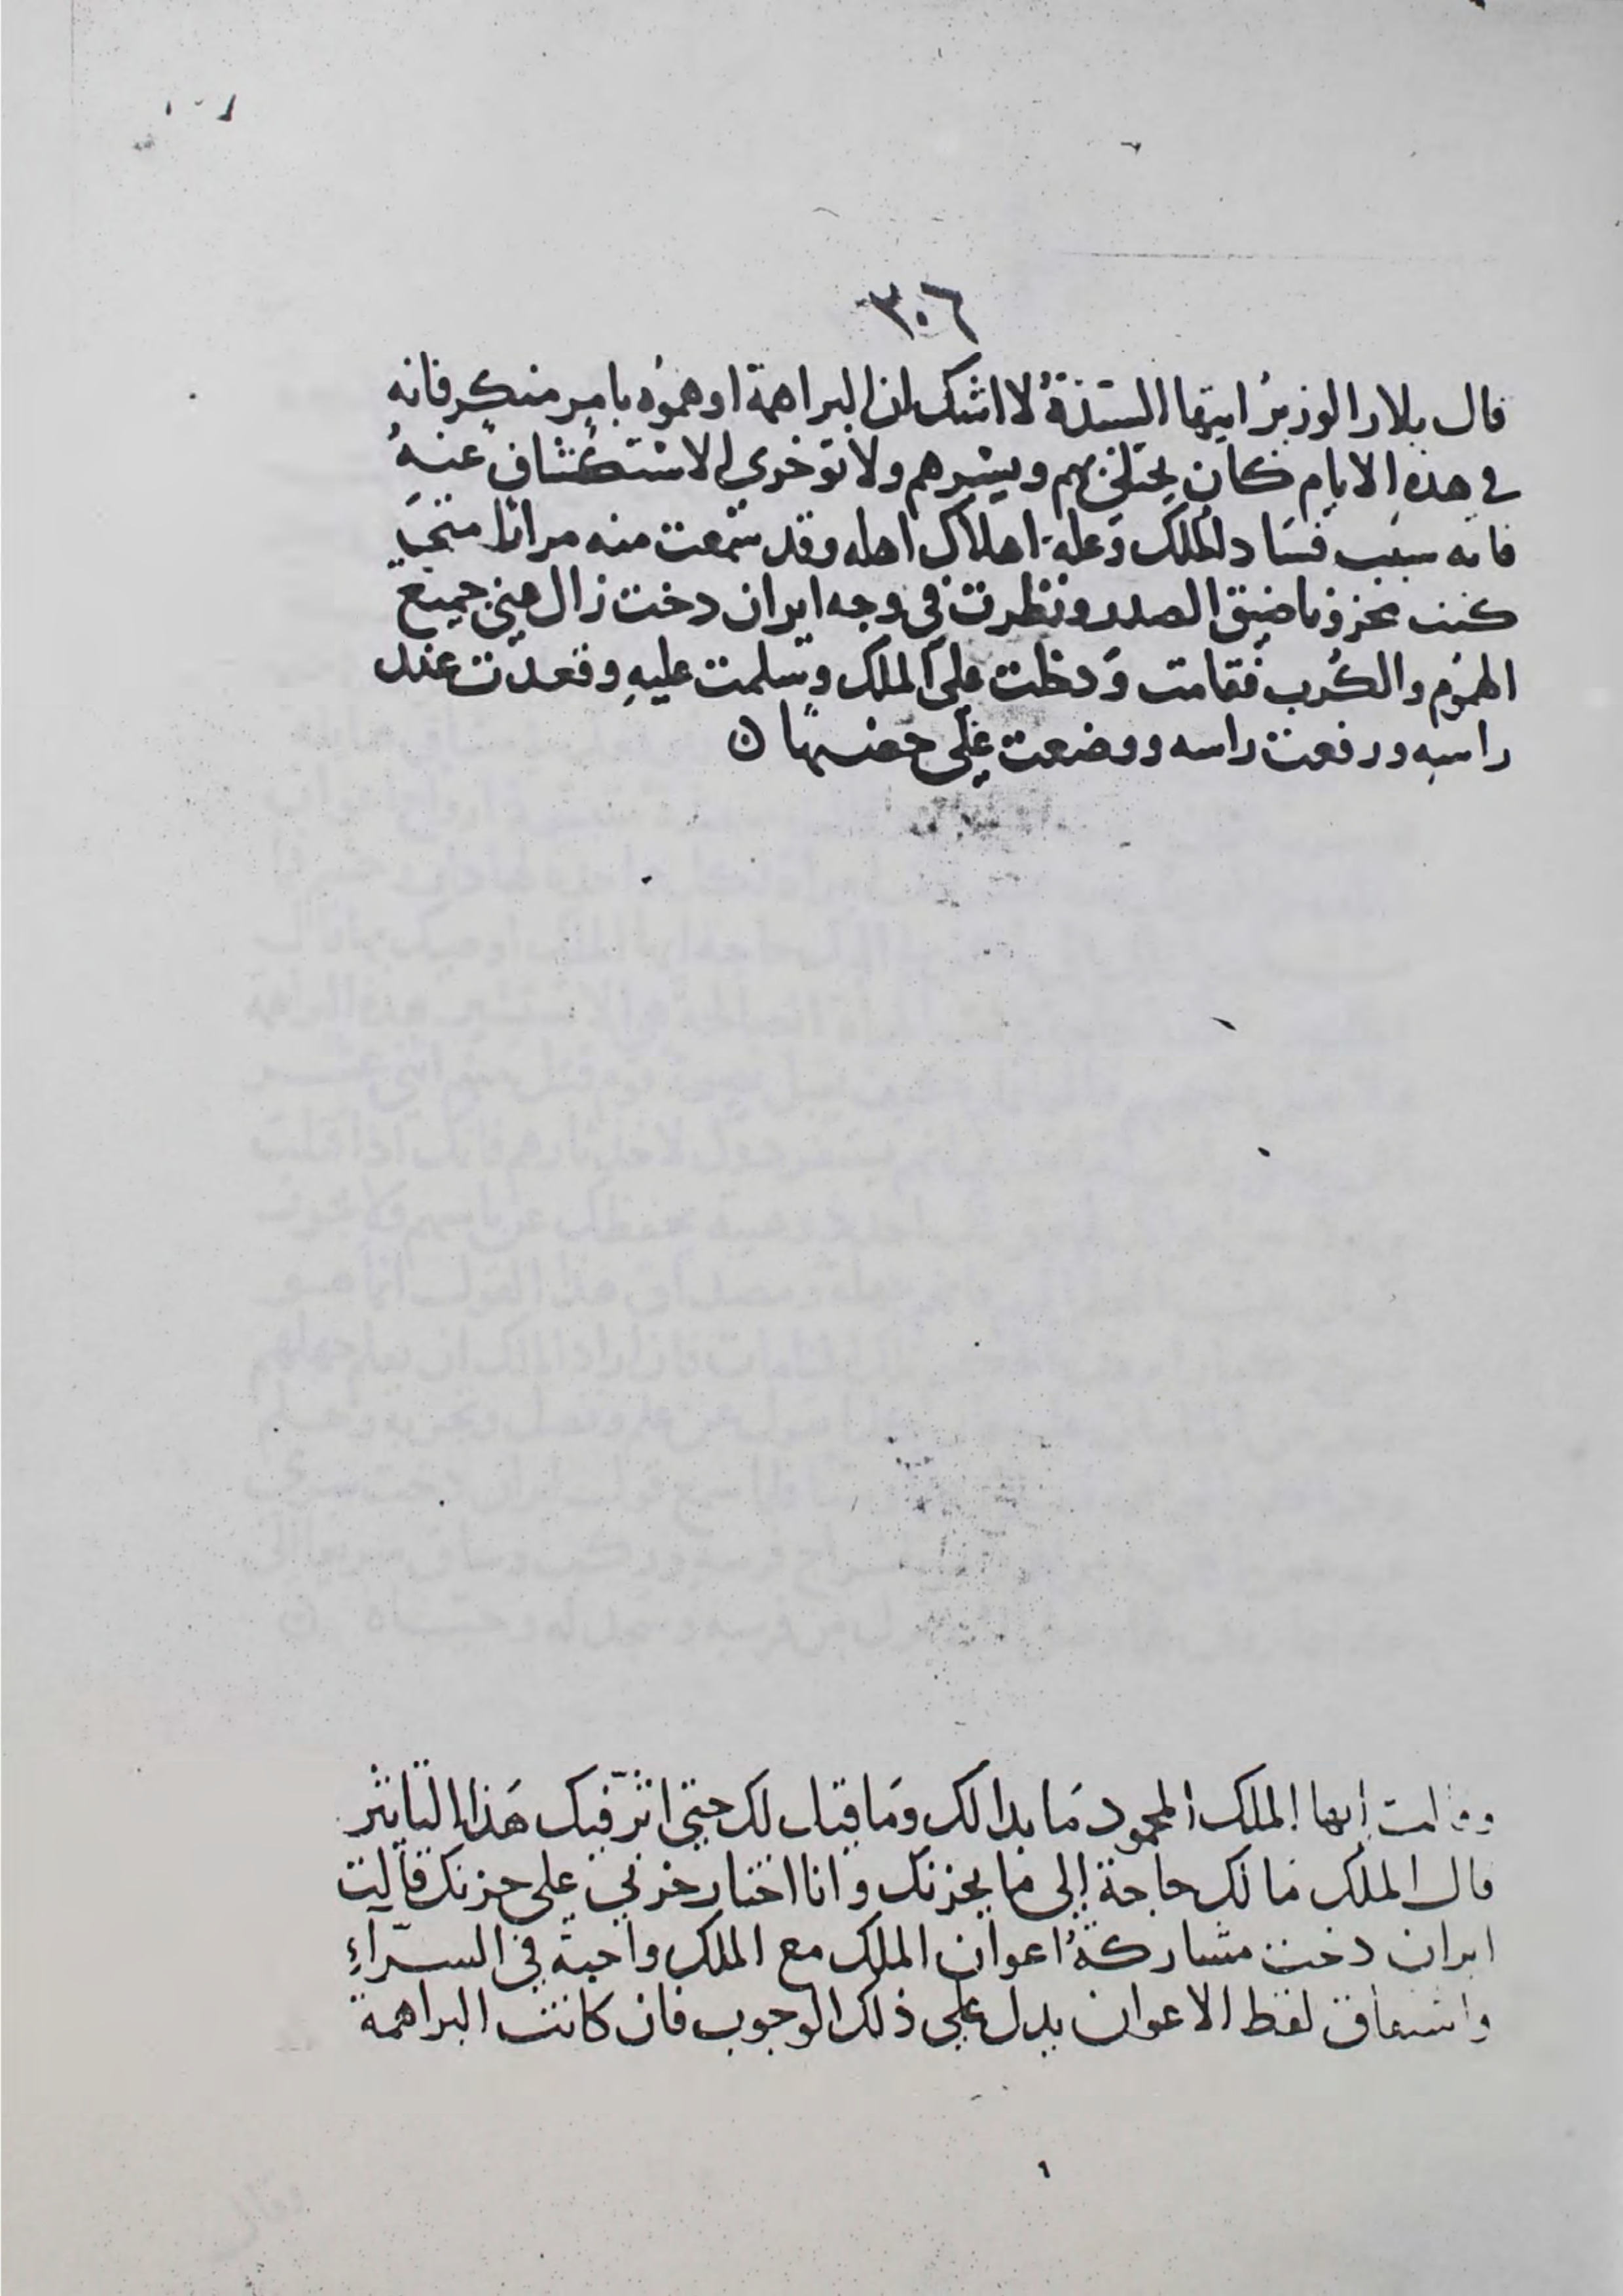 ٣٠٦
قال بلار الوزير ايتها الستذة لا اشك ان البراهمة اوهموه بامر منكر فانه
في هذه الايام كان يختلي بهم ويشيرهم ولا توخري الاستكشاف عنه
فانه سبب فساد الملك وعلة اهلاك اهله وقد سمعت منه مرارا متى
كنت محزونا ضيق الصدر ونظرت في وجه ايران دخت زال عني جميع
الهموم والكرب فقامت ودخلت على الملك وسلمت عليه وقعدت عند
راسه ورفعت راسه ووضعت على حضنها ن
وقالت ايها الملك المحمود ما بدا لك وما قيل لك حتى اثر فيك هذا التاثير
قال الملك ما لك حاجة إلى ما يحزنك وانا اختار حزني على حزنك قالت
ايران دخت مشاركة اعوان الملك مع الملك واجبة في السرآء
واشتقاق لفظ الاعوان يدل على ذلك الوجوب فان كانت البراهمة